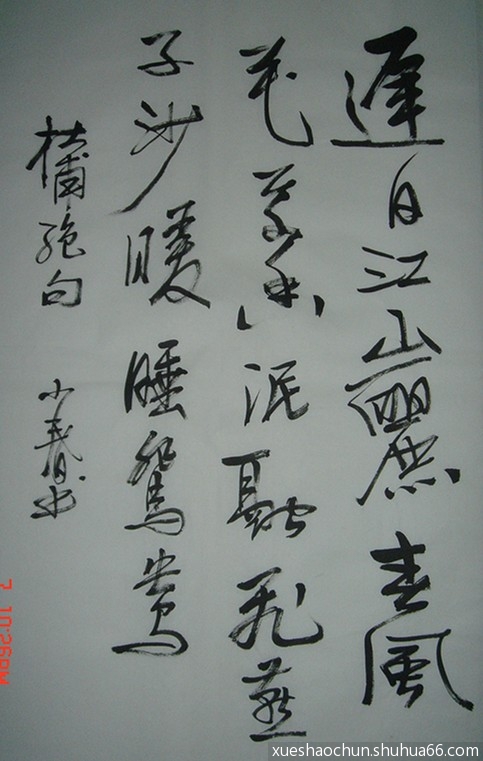 遲日江山麗春風
花草香泥融飛燕
子沙暖睡鴛鴦
杜甫絕句 小春书
7 10:26PM
xueshaochun.shuhua66.com